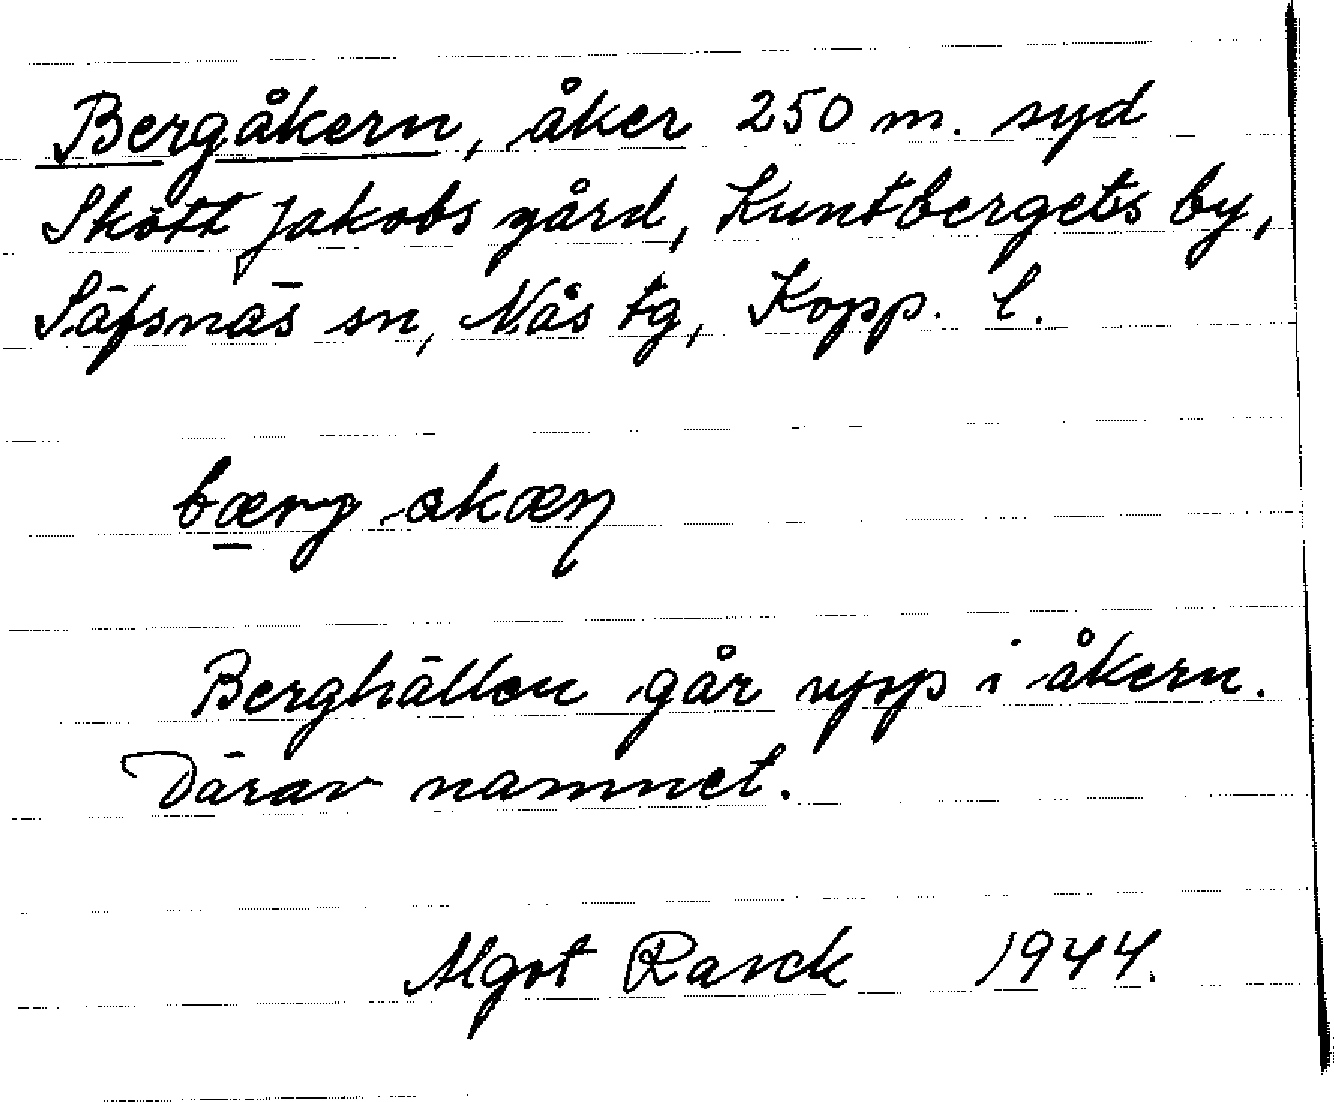 Bergåkern, åker 250 m. syd
Skött Jakobs gård, Kuntbergets by,
Säfsnäs sn, Nås tg, Kopp. l.
bærg akæɳ
Berghällen går upp i åkern.
Därav namnet.
Algot Rask 1944.